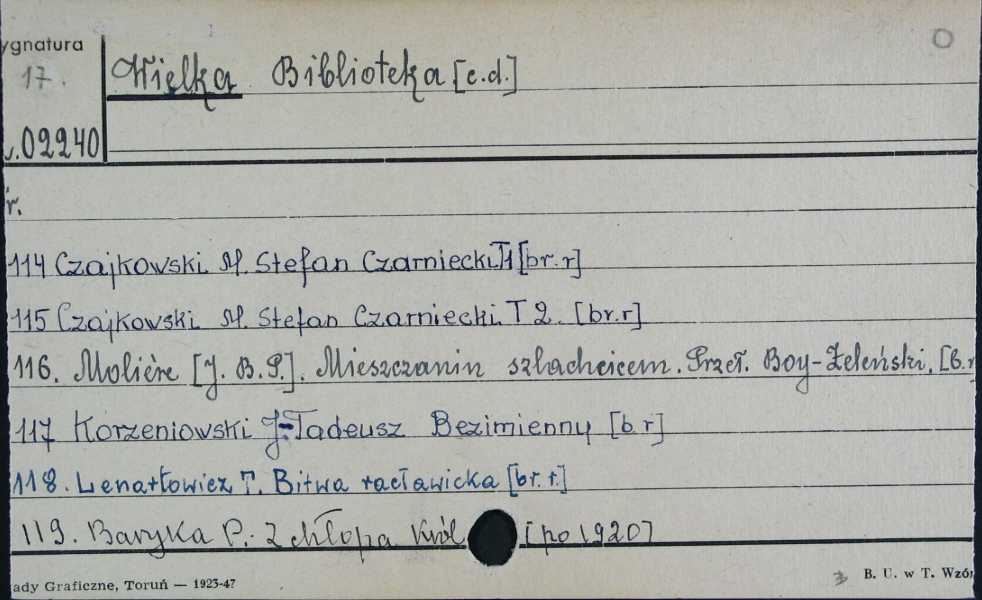 ygnatura
17.
Wielka Biblioteka [c.d.]
02240
r.
114 Czajkowski M. Stefan Czarniecki T1 [br.r]
115 Czajkowski M. Stefan Czarniecki T 2. [br.r]
116. Molière [J. B. P.]. Mieszczanin szlachcicem. Przeł. Boy-Żeleński. [b.r
117 Korzeniowski J. Tadeusz Bezimienny [b r]
118. Lenartowicz T. Bitwa racławicka [br. r.]
119. Baryka P. - Z chłopa król [po 1920]
ady Graficzne, Toruń — 1923-47
B. U. w T. Wzór